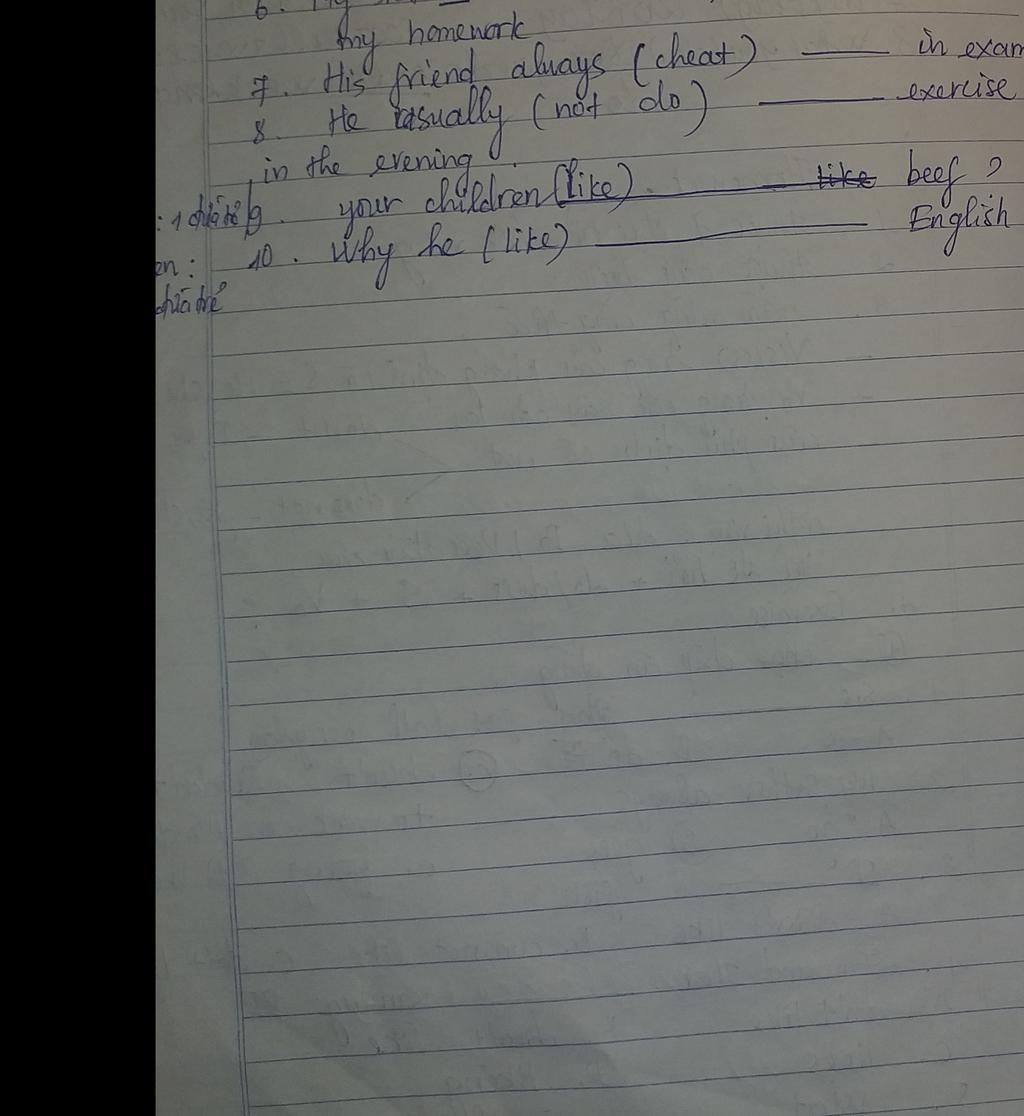 6. My
my homework
7. His friend always (cheat) ____ in exam
8. He usually (not do) ____ exercise
in the evening.
9. your children (like) ____ like beef ?
10. Why he (like) ____ English
en :